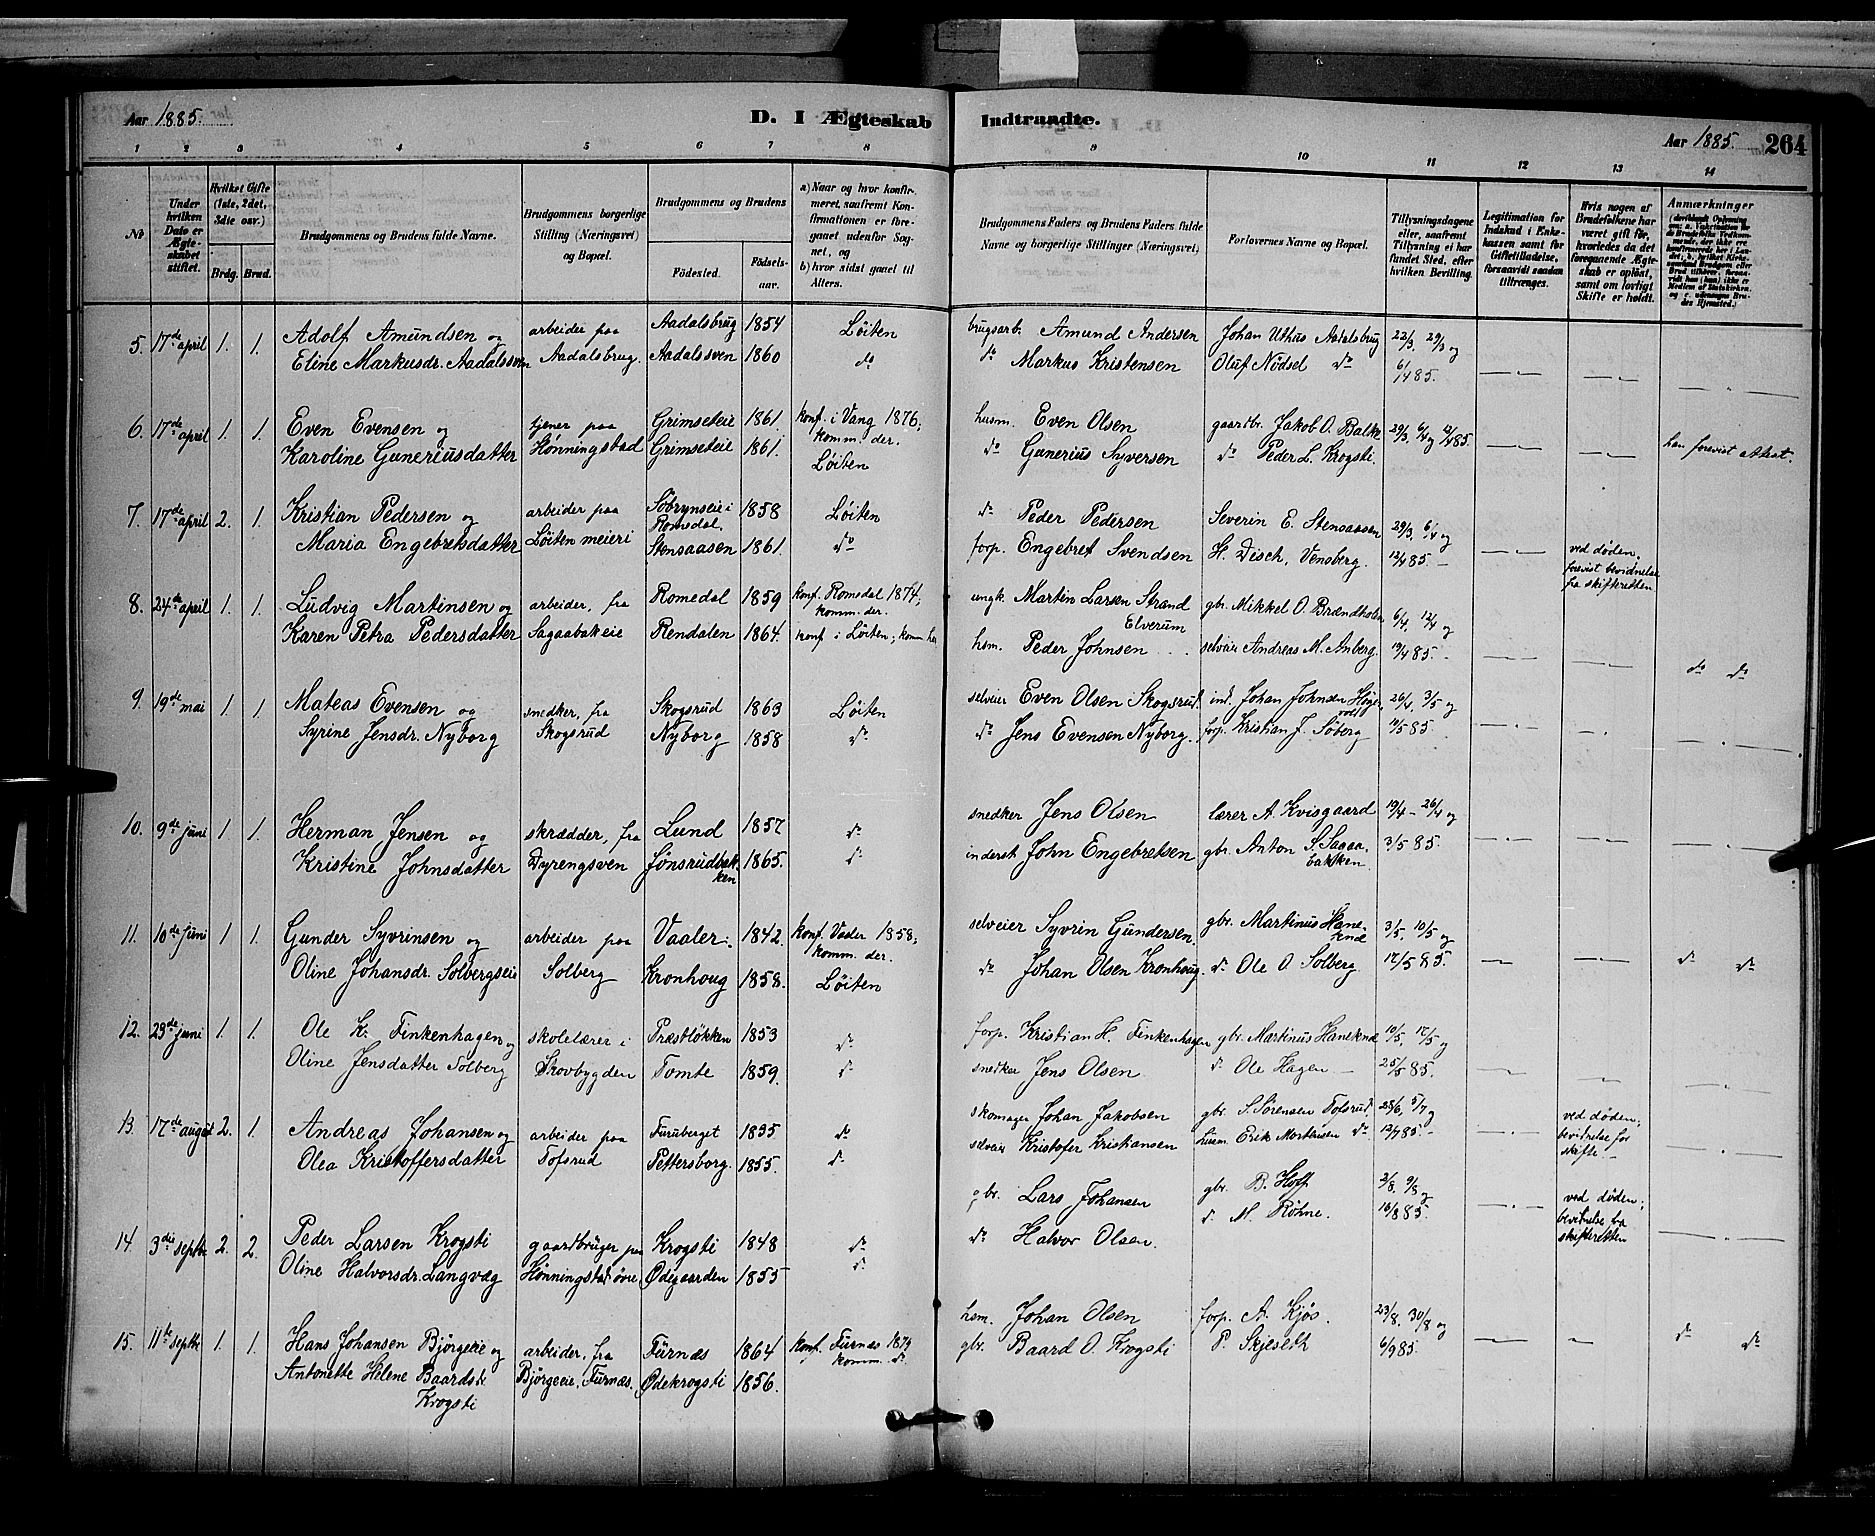 Aar 1885.
D. I Ægteskab Indtraadte.
Aar 1885. 264
1 2 3 4 5 6 7 8 9 10 11 12 13 14
No
Under hvilken Dato er Ægteskabet stiftet.
Hvilket Gifte (1ste, 2det, 3dte osv.)
Brdg. Brud.
Brudgommens og Brudens fulde Navne.
Brudgommens borgerlige Stilling (Næringsvei) og Bopæl.
Brudgommens og Brudens
Fødested. Fødselsaar.
a) Naar og hvor konfirmeret, saafremt Konfirmationen er foregaaet udenfor Sognet, og
b) hvor sidst gaaet til Alters.
Brudgommens Faders og Brudens Faders fulde Navne og borgerlige Stillinger (Næringsvei)
Forlovernes Navne og Bopæl.
Tillysningsdagene eller, saafremt Tillysning ei har fundet Sted, efter hvilken Bevilling.
Legitimation for Indskud i Enkekassen samt for Giftetilladelse, forsaavidt saadan tiltrænges.
Hvis nogen af Brudefolkene har været gift før, hvorledes da det foregaaende Ægteskab er opløst, samt om lovligt Skifte er holdt.
Anmærkninger
5. 17de april 1. 1. Adolf Amundsen og arbeider paa Aadalsbrug 1854 Løiten brugsarb. Amund Andersen Johan Uthus Aadalsbrug 22/3, 29/3 og
Eline Markusdr. Aadalssven Aadalsbrug. Aadalsven 1860 do do Markus Kristensen Oluf Nødsel do 6/4 85.
6. 17de april 1. 1. Even Evensen og tjener paa Grimseteie 1861. konf. i Vang 1876, komm. der. husm. Even Olsen gaardbr. Jakob O. Balke 29/3, 6/4 og 12/4 85.
Karoline Guneriusdatter Hønningstad Grimseteie 1861. Løiten do Gunerius Syversen do Peder L. Krogsti. han forevist attest.
7. 17de april 2. 1. Kristian Pedersen og arbeider paa Søbrynseie i Romsdal, 1858 Løiten do Peder Pedersen Severin E. Stensaasen 29/3, 6/4 og
Maria Engebretsdatter Løiten meieri Stensaasen 1861. do forp. Engebret Svendsen H. Disch, Vensberg. 12/4 85. ved døden. forevist bevidnelse fra skifteretten
8. 24de april 1. 1. Ludvig Martinsen og arbeider, fra Romedal 1859 konf. Romsdal 1874, komm. der. ungk. Martin Larsen Strand Elverum gbr. Mikkel O. Brændholen 6/4, 12/4 og
Karen Petra Pedersdatter Sagaabakeie Rendalen 1864. konf. i Løiten; komm. her hsm. Peder Johnsen selveier Andreas M. Anberg. 19/4 85. do do
9. 19de mai 1. 1. Mateas Evensen og snedker, fra Skogsrud 1863 Løiten selveier Even Olsen Skogsrud ind. Johan Johnsen Høgevold 26/4, 3/5 og
Syrine Jensdr. Nyborg Skogsrud Nyborg 1858 do do Jens Evensen Nyborg. forp. Kristian J. Søberg 10/5 85.
10. 9de juni 1. 1. Herman Jensen og skrædder, fra Lund 1857 do snedker Jens Olsen lærer A. Kvisgaard 19/4 - 26/4 og
Kristine Johnsdatter Dyrengsven Jønsrudbakken 1865. do inderst John Engebretsen gbr. Anton S. Sagaabakken 3/5 85.
11. 10de juni 1. 1. Gunder Syvrinsen og arbeider paa Vaaler 1842. konf. Vaaler 1858, komm. der. selveier Syvrin Gundersen. gbr. Martinus Haneknæ 3/5, 10/5 og
Oline Johansdr. Solbergseie Solberg Kronhoug 1858. Løiten do Johan Olsen Kronhoug. do Ole O. Solberg. 17/5 85. do do
12. 23de juni 1. 1. Ole K. Finkenhagen og skolelærer i Præstløkken 1853 do forp. Kristian H. Finkenhagen gbr. Martinus Haneknæ 10/5, 17/5 og
Oline Jensdatter Solberg Skovbygden Tomte 1859. do snedker Jens Olsen do Ole Hagen 25/5 85.
13. 17de august 2. 1. Andreas Johansen og arbeider paa Furuberget 1835 do skomager Johan Jakobsen gbr. S. Sørensen Tofsrud 28/6, 5/7 og
Olea Kristoffersdatter Tofsrud Pettersborg. 1855. do selveier Kristofer Kristiansen husm. Erik Mortensen do 12/7 85. ved døden; bevidnelse for skifte.
14. 3die septbr 2. 2. Peder Larsen Krogsti gaardbruger paa Krogsti 1848 do gbr. Lars Johansen gbr. B. Hoff 2/8, 9/8 og
Oline Halvorsdr. Langvæg Hønningstad øvre Ødegaarden 1855 do do Halvor Olsen. do M. Røhne. 16/8 85. ved døden; bevidnelse fra skifteretten
15. 11te septbr 1. 1. Hans Johansen Bjørgeeie og arbeider, fra Furnæs 1864 konf. Furnæs 1879 komm. do. hsm. Johan Olsen forp. A. Kjøs. 23/8, 30/8 og
Antonette Helene Baardsdr. Krogsti Bjørgeeie, Furnæs. Ødekrogsti 1856. gbr. Baard O. Krogsti P. Skjeseth 6/9 85. do do